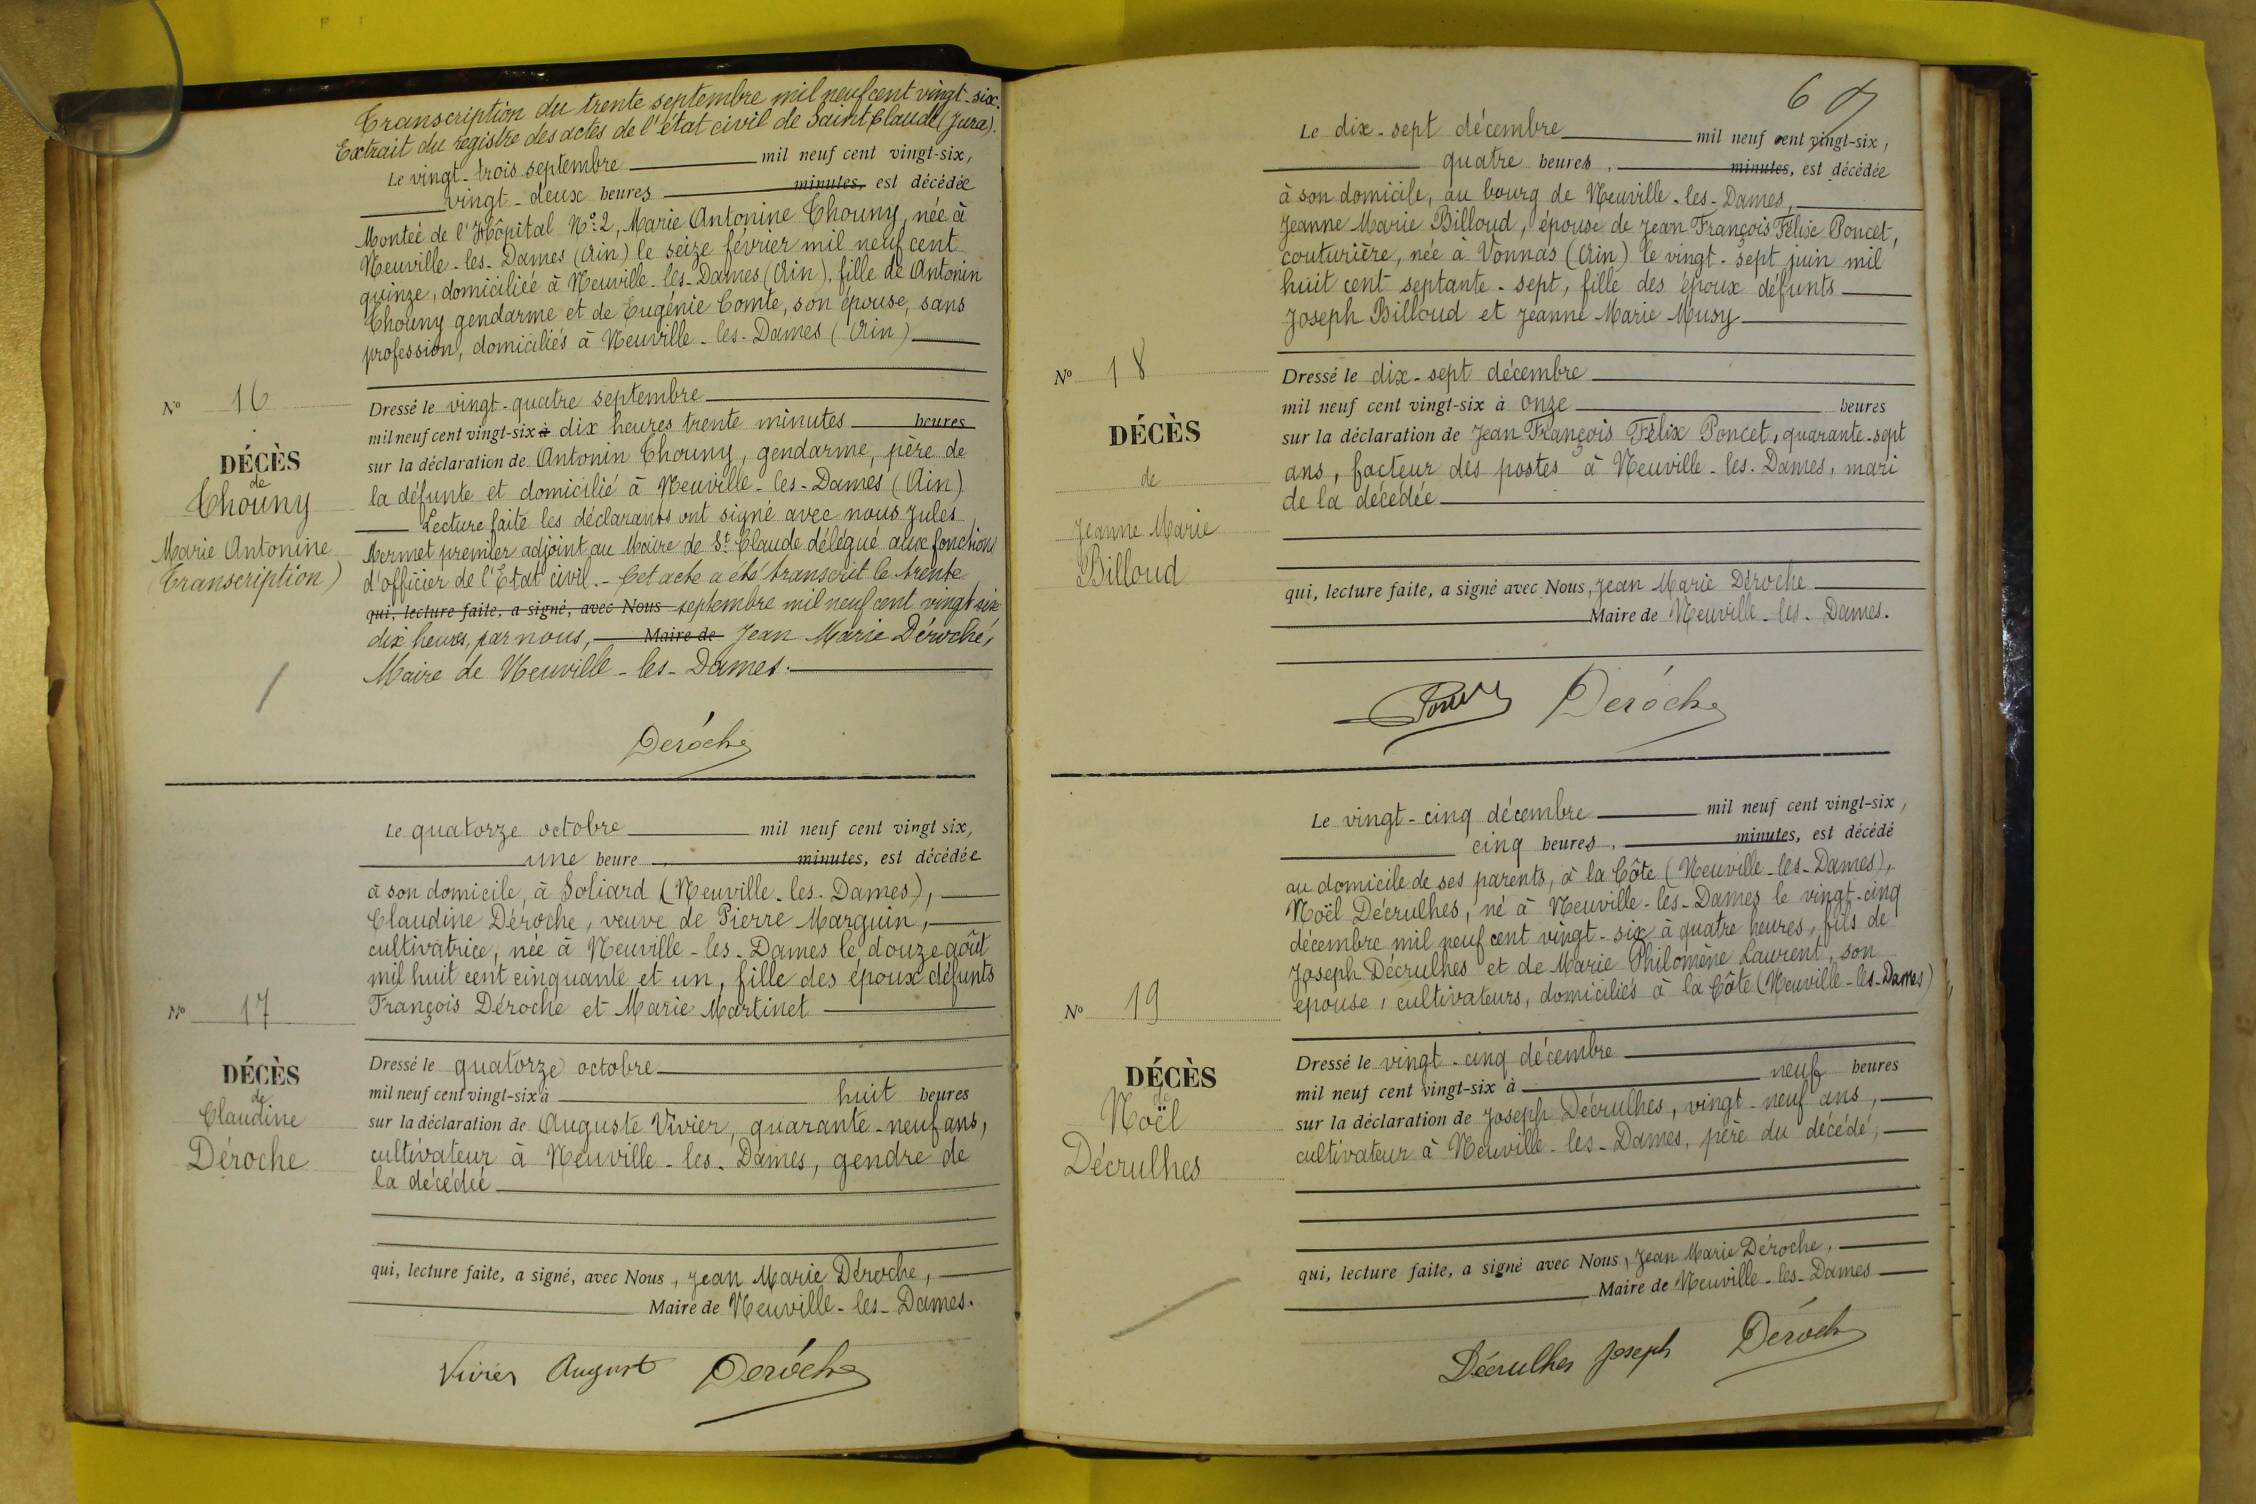 Transcription du trente septembre mil neuf cent vingt-six.
Extrait du registre des actes de l'état civil de Saint Claude (Jura).
Le vingt-trois septembre mil neuf cent vingt-six,
vingt-deux heures minutes, est décédée
Montée de l'Hôpital N° 2, Marie Antonine Thouny, née à
Neuville-les-Dames (Ain) le seize février mil neuf cent
quinze, domiciliée à Neuville-les-Dames (Ain), fille de Antonin
Thouny gendarme et de Eugénie Comte, son épouse, sans
profession, domiciliés à Neuville-les-Dames (Ain)
N° 16
DÉCÈS
de
Thouny
Marie Antonine
Transcription)
Dressé le vingt-quatre septembre
mil neuf cent vingt-six à dix heures trente minutes heures
sur la déclaration de Antonin Thouny, gendarme, père de
la défunte et domicilié à Neuville-les-Dames (Ain)
Lecture faite les déclarants ont signé avec nous Jules
Mermet premier adjoint au Maire de St Claude délégué aux fonctions
d'officier de l'Etat civil. - Cet acte a été transcrit le trente
qui, lecture faite, a signé, avec Nous septembre mil neuf cent vingt six
dix heures, par nous, Maire de Jean Marie Déroche,
Maire de Neuville-les-Dames.
Déroche
Le quatorze octobre mil neuf cent vingt six,
une heure minutes, est décédée
à son domicile, à Soliard (Neuville-les-Dames),
Claudine Déroche, veuve de Pierre Marguin,
cultivatrice, née à Neuville-les-Dames le douze août
mil huit cent cinquante et un, fille des époux défunts
François Déroche et Marie Martinet
N° 17
DÉCÈS
de
Claudine
Déroche
Dressé le quatorze octobre
mil neuf cent vingt-six à huit heures
sur la déclaration de Auguste Vivier, quarante-neuf ans,
cultivateur à Neuville-les-Dames, gendre de
la décédée
qui, lecture faite, a signé, avec Nous, Jean Marie Déroche,
Maire de Neuville-les-Dames.
Vivier August Déroche
6
Le dix-sept décembre mil neuf cent vingt-six,
quatre heures, minutes, est décédée
à son domicile, au bourg de Neuville-les-Dames,
Jeanne Marie Billoud, épouse de Jean François Félix Poncet,
couturière, née à Vonnas (Ain) le vingt-sept juin mil
huit cent septante-sept, fille des époux défunts
Joseph Billoud et Jeanne Marie Musy
N° 18
DÉCÈS
de
Jeanne Marie
Billoud
Dressé le dix-sept décembre
mil neuf cent vingt-six à onze heures
sur la déclaration de Jean François Félix Poncet, quarante-sept
ans, facteur des postes à Neuville-les-Dames, mari
de la décédée
qui, lecture faite, a signé avec Nous, Jean Marie Déroche
Maire de Neuville-les-Dames.
Déroche
Le vingt-cinq décembre mil neuf cent vingt-six,
cinq heures, minutes, est décédé
au domicile de ses parents, à la Côte (Neuville-les-Dames),
Noël Décrulhes, né à Neuville-les-Dames le vingt-cinq
décembre mil neuf cent vingt-six à quatre heures, fils de
Joseph Décrulhes et de Marie Philomène Laurent, son
épouse, cultivateurs, domiciliés à la Côte (Neuville-les-Dames)
N° 19
DÉCÈS
de
Noël
Décrulhes
Dressé le vingt-cinq décembre
mil neuf cent vingt-six à neuf heures
sur la déclaration de Joseph Décrulhes, vingt-neuf ans,
cultivateur à Neuville-les-Dames, père du décédé,
qui, lecture faite, a signé avec Nous, Jean Marie Déroche,
Maire de Neuville-les-Dames
Décrulhes Joseph Déroche